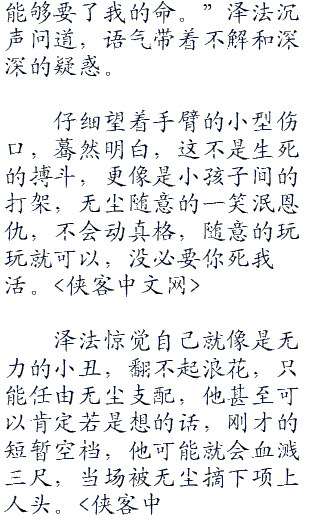 能够要了我的命。”泽法沉
声问道，语气带着不解和深
深的疑惑。
仔细望着手臂的小型伤
口，蓦然明白，这不是生死
的搏斗，更像是小孩子间的
打架，无尘随意的一笑泯恩
仇，不会动真格，随意的玩
玩就可以，没必要你死我
活。<侠客中文网>
泽法惊觉自己就像是无
力的小丑，翻不起浪花，只
能任由无尘支配，他甚至可
以肯定若是想的话，刚才的
短暂空档，他可能就会血溅
三尺，当场被无尘摘下项上
人头。<侠客中